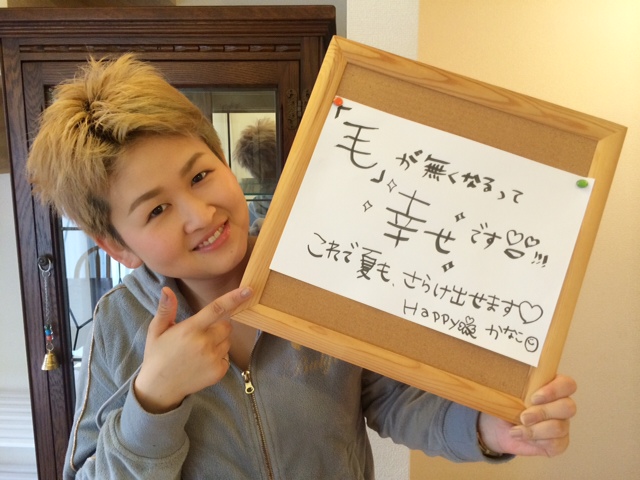 「毛」が無くなるって
幸せです♡♡!!!
これで夏も、さらけ出せます♡
Happy かなこ